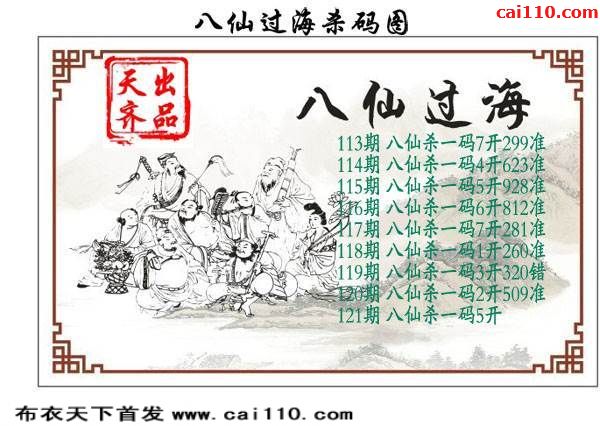 cai110.com
八仙过海杀码图
天齐
出品
八仙过海
113期 八仙杀一码7开299准
114期 八仙杀一码4开623准
115期 八仙杀一码5开928准
116期 八仙杀一码6开812准
117期 八仙杀一码7开281准
118期 八仙杀一码1开260准
119期 八仙杀一码3开320错
120期 八仙杀一码2开509准
121期 八仙杀一码5开
布衣天下首发 www.cai110.com